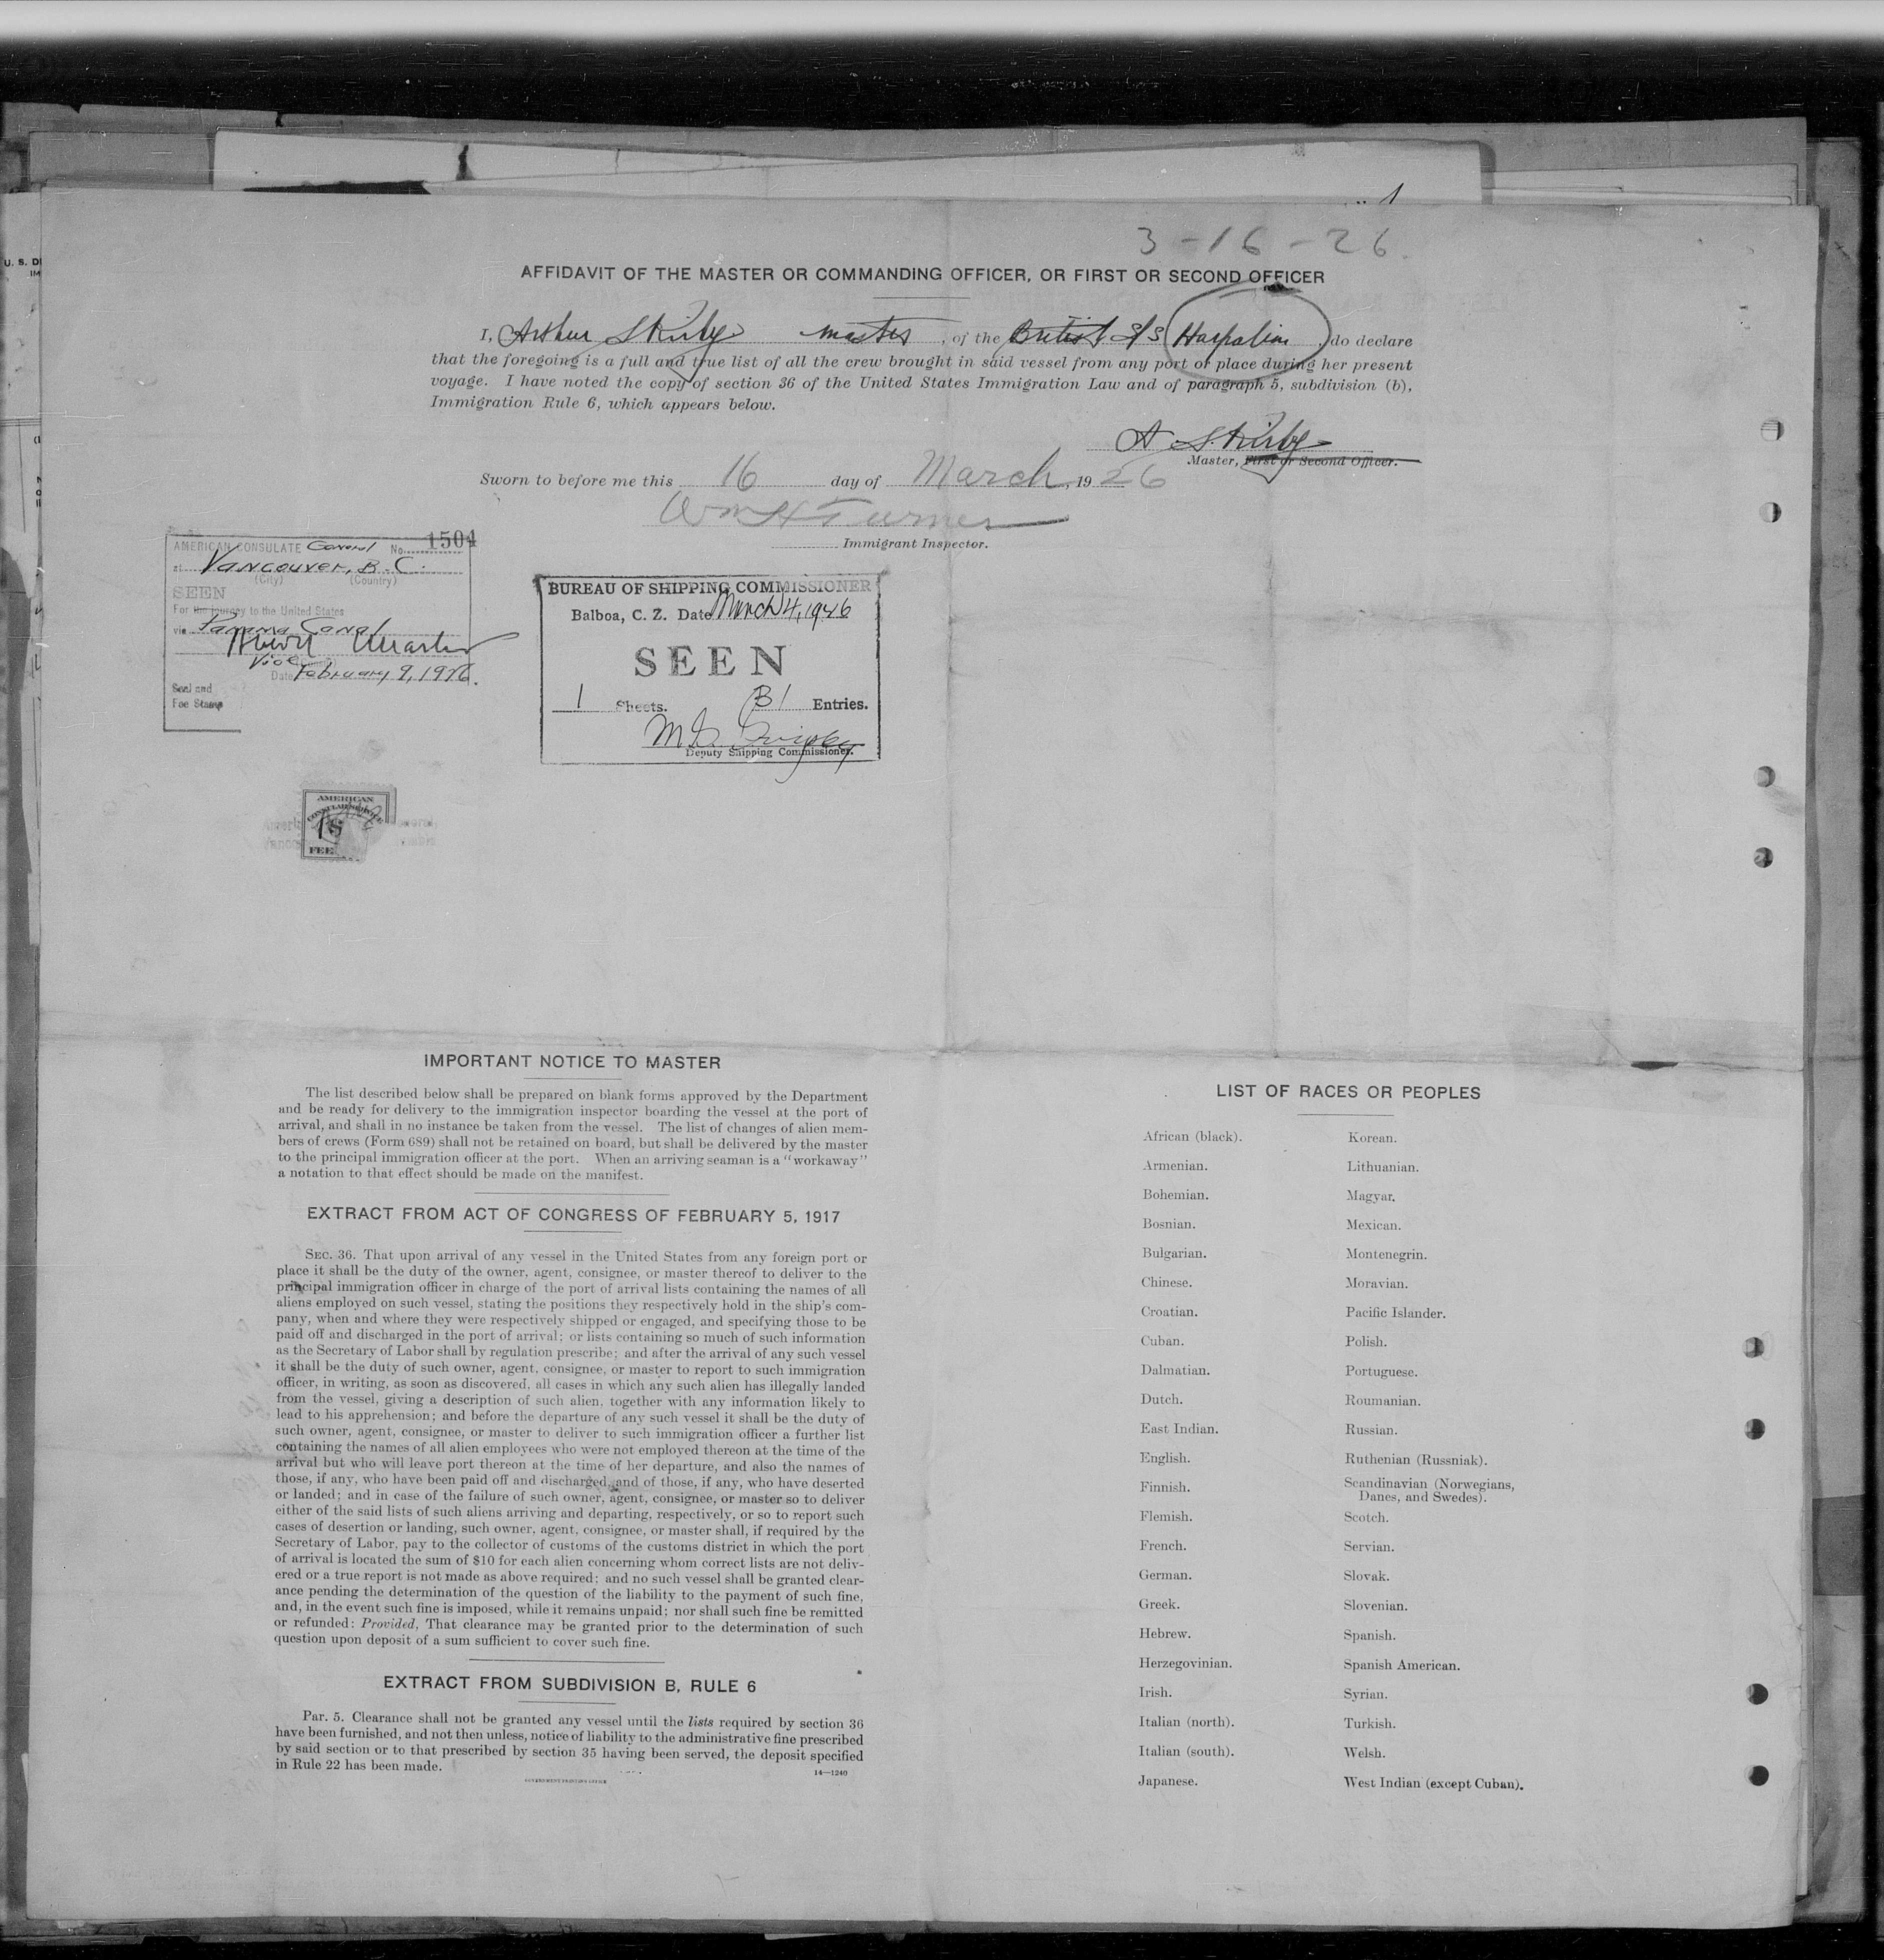 3-16-26
AFFIDAVIT OF THE MASTER OR COMMANDING OFFICER, OR FIRST OR SECOND OFFICER
I, Arthur S Kirby master, of the British S/S Harpalion, do declare
that the foregoing is a full and true list of all the crew brought in said vessel from any port or place during her present
voyage. I have noted the copy of section 36 of the United States Immigration Law and of paragraph 5, subdivision (b),
Immigration Rule 6, which appears below.
A. S. Kirby
Master, First or Second Officer.
Sworn to before me this 16 day of March, 1926
Wm H Turner
Immigrant Inspector.
AMERICAN CONSULATE General No. 1504
at Vancouver, B.C.
(City) (Country)
SEEN
For the journey to the United States
via Panama Canal
Vice
Date February 9, 1926.
Seal and
Fee Stamp
BUREAU OF SHIPPING COMMISSIONER
Balboa, C. Z. Date March 4, 1926
SEEN
1 Sheets. 31 Entries.
Deputy Shipping Commissioner.
AMERICAN
CONSULAR SERVICE
1$
FEE
IMPORTANT NOTICE TO MASTER
The list described below shall be prepared on blank forms approved by the Department
and be ready for delivery to the immigration inspector boarding the vessel at the port of
arrival, and shall in no instance be taken from the vessel. The list of changes of alien mem-
bers of crews (Form 689) shall not be retained on board, but shall be delivered by the master
to the principal immigration officer at the port. When an arriving seaman is a "workaway"
a notation to that effect should be made on the manifest.
EXTRACT FROM ACT OF CONGRESS OF FEBRUARY 5, 1917
SEC. 36. That upon arrival of any vessel in the United States from any foreign port or
place it shall be the duty of the owner, agent, consignee, or master thereof to deliver to the
principal immigration officer in charge of the port of arrival lists containing the names of all
aliens employed on such vessel, stating the positions they respectively hold in the ship's com-
pany, when and where they were respectively shipped or engaged, and specifying those to be
paid off and discharged in the port of arrival; or lists containing so much of such information
as the Secretary of Labor shall by regulation prescribe; and after the arrival of any such vessel
it shall be the duty of such owner, agent, consignee, or master to report to such immigration
officer, in writing, as soon as discovered, all cases in which any such alien has illegally landed
from the vessel, giving a description of such alien, together with any information likely to
lead to his apprehension; and before the departure of any such vessel it shall be the duty of
such owner, agent, consignee, or master to deliver to such immigration officer a further list
containing the names of all alien employees who were not employed thereon at the time of the
arrival but who will leave port thereon at the time of her departure, and also the names of
those, if any, who have been paid off and discharged, and of those, if any, who have deserted
or landed; and in case of the failure of such owner, agent, consignee, or master so to deliver
either of the said lists of such aliens arriving and departing, respectively, or so to report such
cases of desertion or landing, such owner, agent, consignee, or master shall, if required by the
Secretary of Labor, pay to the collector of customs of the customs district in which the port
of arrival is located the sum of $10 for each alien concerning whom correct lists are not deliv-
ered or a true report is not made as above required; and no such vessel shall be granted clear-
ance pending the determination of the question of the liability to the payment of such fine,
and, in the event such fine is imposed, while it remains unpaid; nor shall such fine be remitted
or refunded: Provided, That clearance may be granted prior to the determination of such
question upon deposit of a sum sufficient to cover such fine.
EXTRACT FROM SUBDIVISION B, RULE 6
Par. 5. Clearance shall not be granted any vessel until the lists required by section 36
have been furnished, and not then unless, notice of liability to the administrative fine prescribed
by said section or to that prescribed by section 35 having been served, the deposit specified
in Rule 22 has been made.
14—1240
GOVERNMENT PRINTING OFFICE
LIST OF RACES OR PEOPLES
African (black). Korean.
Armenian. Lithuanian.
Bohemian. Magyar.
Bosnian. Mexican.
Bulgarian. Montenegrin.
Chinese. Moravian.
Croatian. Pacific Islander.
Cuban. Polish.
Dalmatian. Portuguese.
Dutch. Roumanian.
East Indian. Russian.
English. Ruthenian (Russniak).
Finnish. Scandinavian (Norwegians,
Danes, and Swedes).
Flemish. Scotch.
French. Servian.
German. Slovak.
Greek. Slovenian.
Hebrew. Spanish.
Herzegovinian. Spanish American.
Irish. Syrian.
Italian (north). Turkish.
Italian (south). Welsh.
Japanese. West Indian (except Cuban).